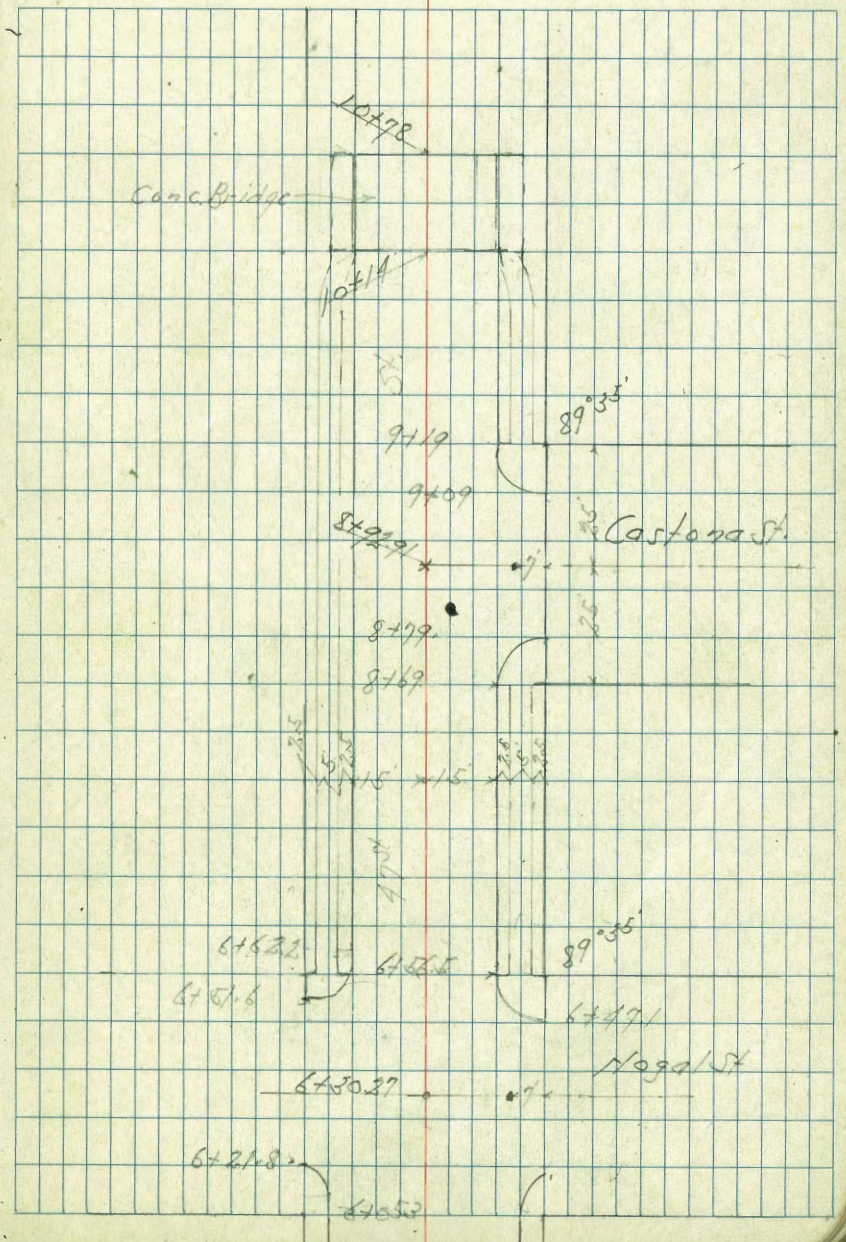 10+78
Conc. Bridge
10+14
St.
89°35'
9+19
9+09
25'
Castona St.
8+92.91
7'
25'
8+79.
8+69
2.5
5
2.5
15'
15'
2.5
5'
2.5
47 St
89°35'
6+62.2
6+56.5
6+51.6
6+47.1
Nogal St
6+30.27
7'
6+21.8
6+05.3